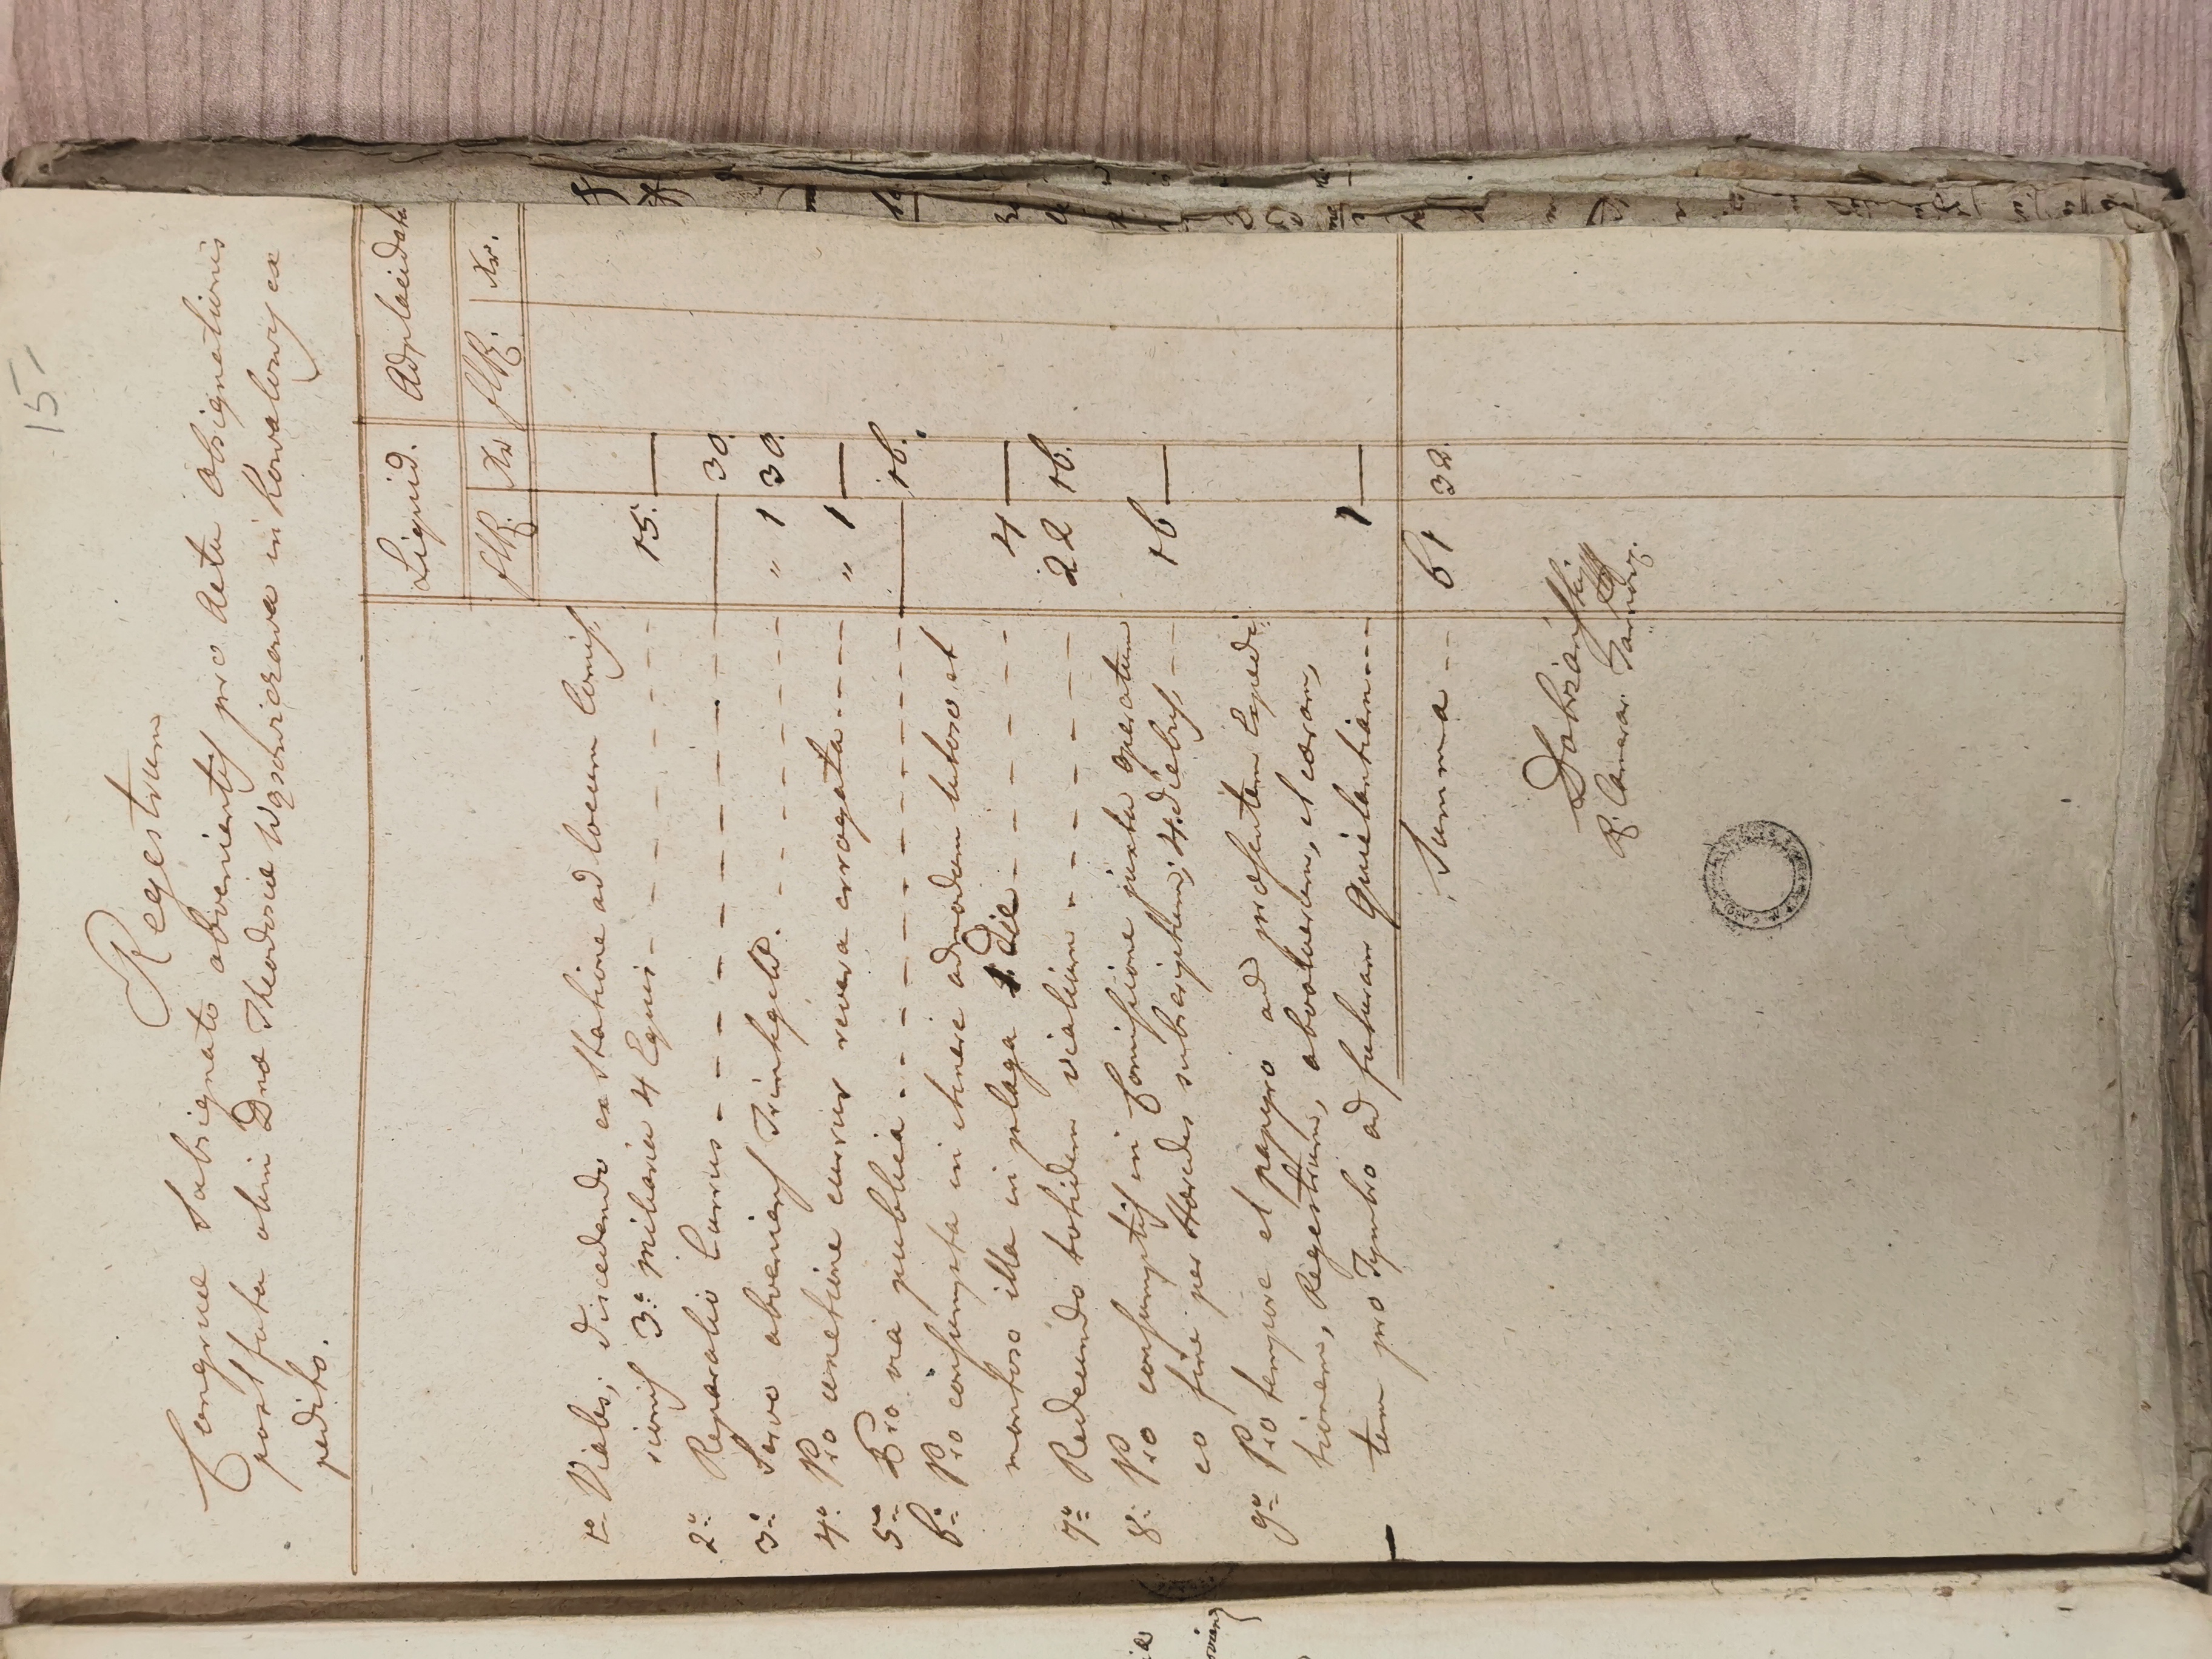 15
Regestrum
Congrue Subsignato obvenientis pro Actu Obsignationis
post fata olim Dnae Theodosiae Wyszowiczowa in Kowalowy ex
pedito.
Liquid. Adplacidat
fl R. Xr fl R. Xr.
1o Viales, discedendo ex Statione ad locum Comis-
sionis 3a milaria 4 Equis - - - 15. —
2o Reparatio Currus - - - — 30.
3o Servo obveniens Trinkgeld. - - - " 1 30.
4o Pro unctione currus revera errogata - - - " 1 —
5o Pro via publica - - - — 16.
6o Pro consumpta in itinere admodum lutoso et
montoso illa in plaga 1. Die - - - 4 —
7o Redeundo totidem vialium - - - 22 16.
8o Pro consumptis in Comissione juxta operatum
eo fine per Haeredes subscriptum, 4. diebus - - 16 —
9o Pro tempore et papyro ad praesentem Expedi-
tionem, Regestrum, obvolutam, et coeram,
tem pro Tymbro ad futuram Quietantiam - - - 1 —
Summa - - - 61 32.
Dobrzański
R. Camerar. Sandz.